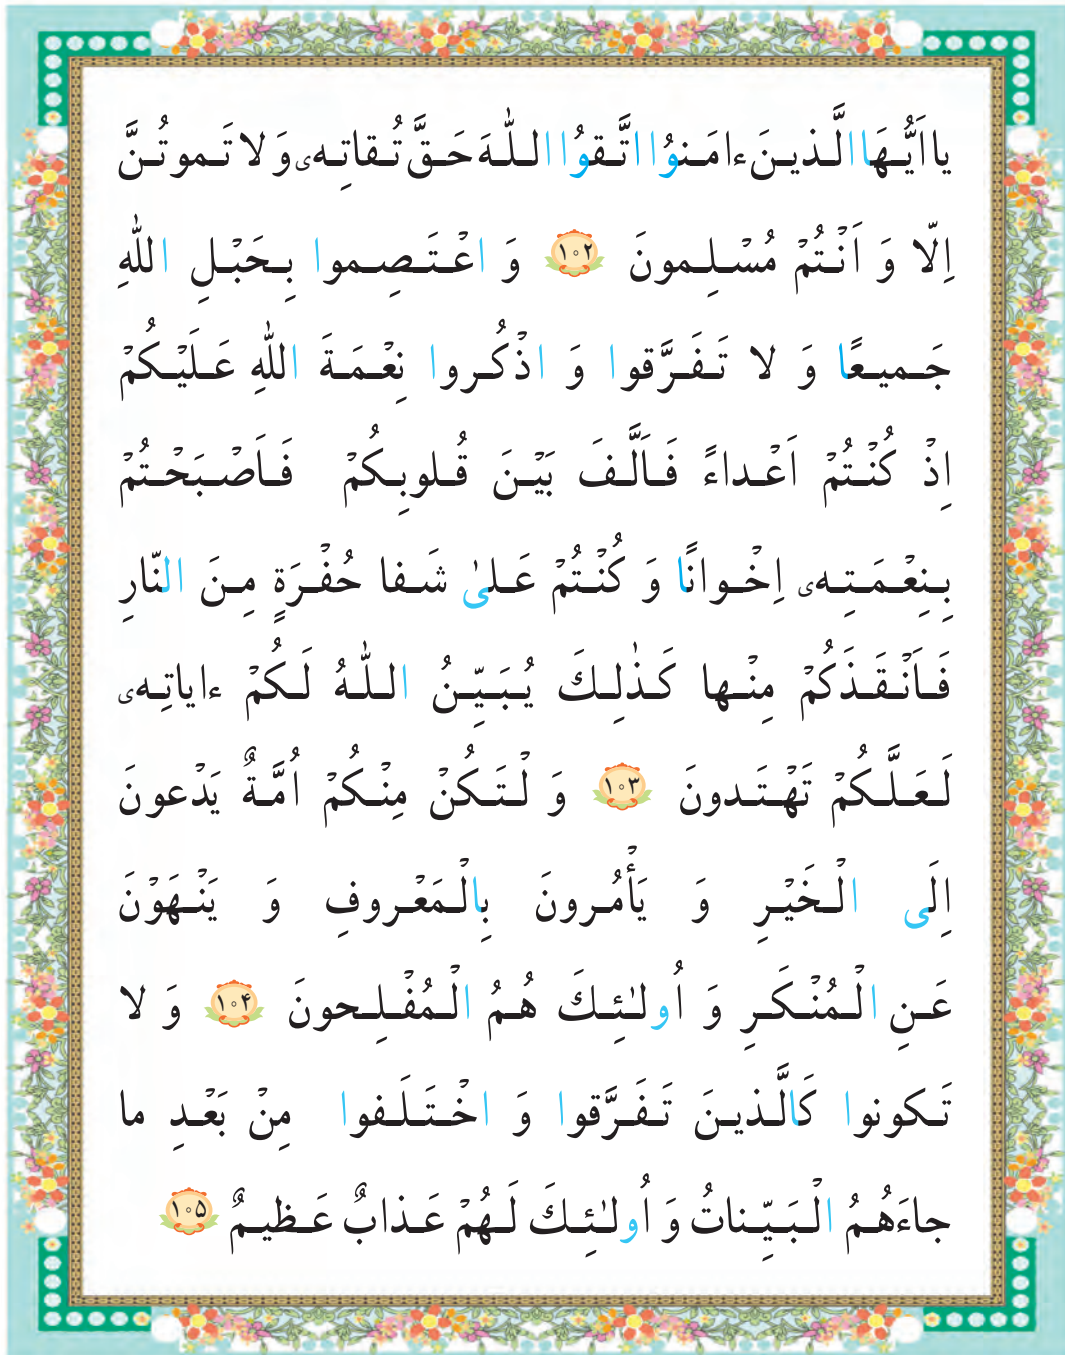 يا اَيُّهَا الَّذينَ ءامَنوُا اتَّقوُا اللّٰهَ حَقَّ تُقاتِهٖ وَ لا تَموتُنَّ
اِلّا وَ اَنْتُمْ مُسْلِمونَ ﴿۱۰۲﴾ وَ اعْتَصِموا بِحَبْلِ اللّٰهِ
جَميعًا وَ لا تَفَرَّقوا وَ اذْكُروا نِعْمَةَ اللّٰهِ عَلَيْكُمْ
اِذْ كُنْتُمْ اَعْداءً فَاَلَّفَ بَيْنَ قُلوبِكُمْ فَاَصْبَحْتُمْ
بِنِعْمَتِهٖ اِخْوانًا وَ كُنْتُمْ عَلىٰ شَفا حُفْرَةٍ مِنَ النّارِ
فَاَنْقَذَكُمْ مِنْها كَذٰلِكَ يُبَيِّنُ اللّٰهُ لَكُمْ ءاياتِهٖ
لَعَلَّكُمْ تَهْتَدونَ ﴿۱۰۳﴾ وَ لْتَكُنْ مِنْكُمْ اُمَّةٌ يَدْعونَ
اِلَى الْخَيْرِ وَ يَأْمُرونَ بِالْمَعْروفِ وَ يَنْهَوْنَ
عَنِ الْمُنْكَرِ وَ اُولٰئِكَ هُمُ الْمُفْلِحونَ ﴿۱۰۴﴾ وَ لا
تَكونوا كَالَّذينَ تَفَرَّقوا وَ اخْتَلَفوا مِنْ بَعْدِ ما
جاءَهُمُ الْبَيِّناتُ وَ اُولٰئِكَ لَهُمْ عَذابٌ عَظيمٌ ﴿۱۰۵﴾